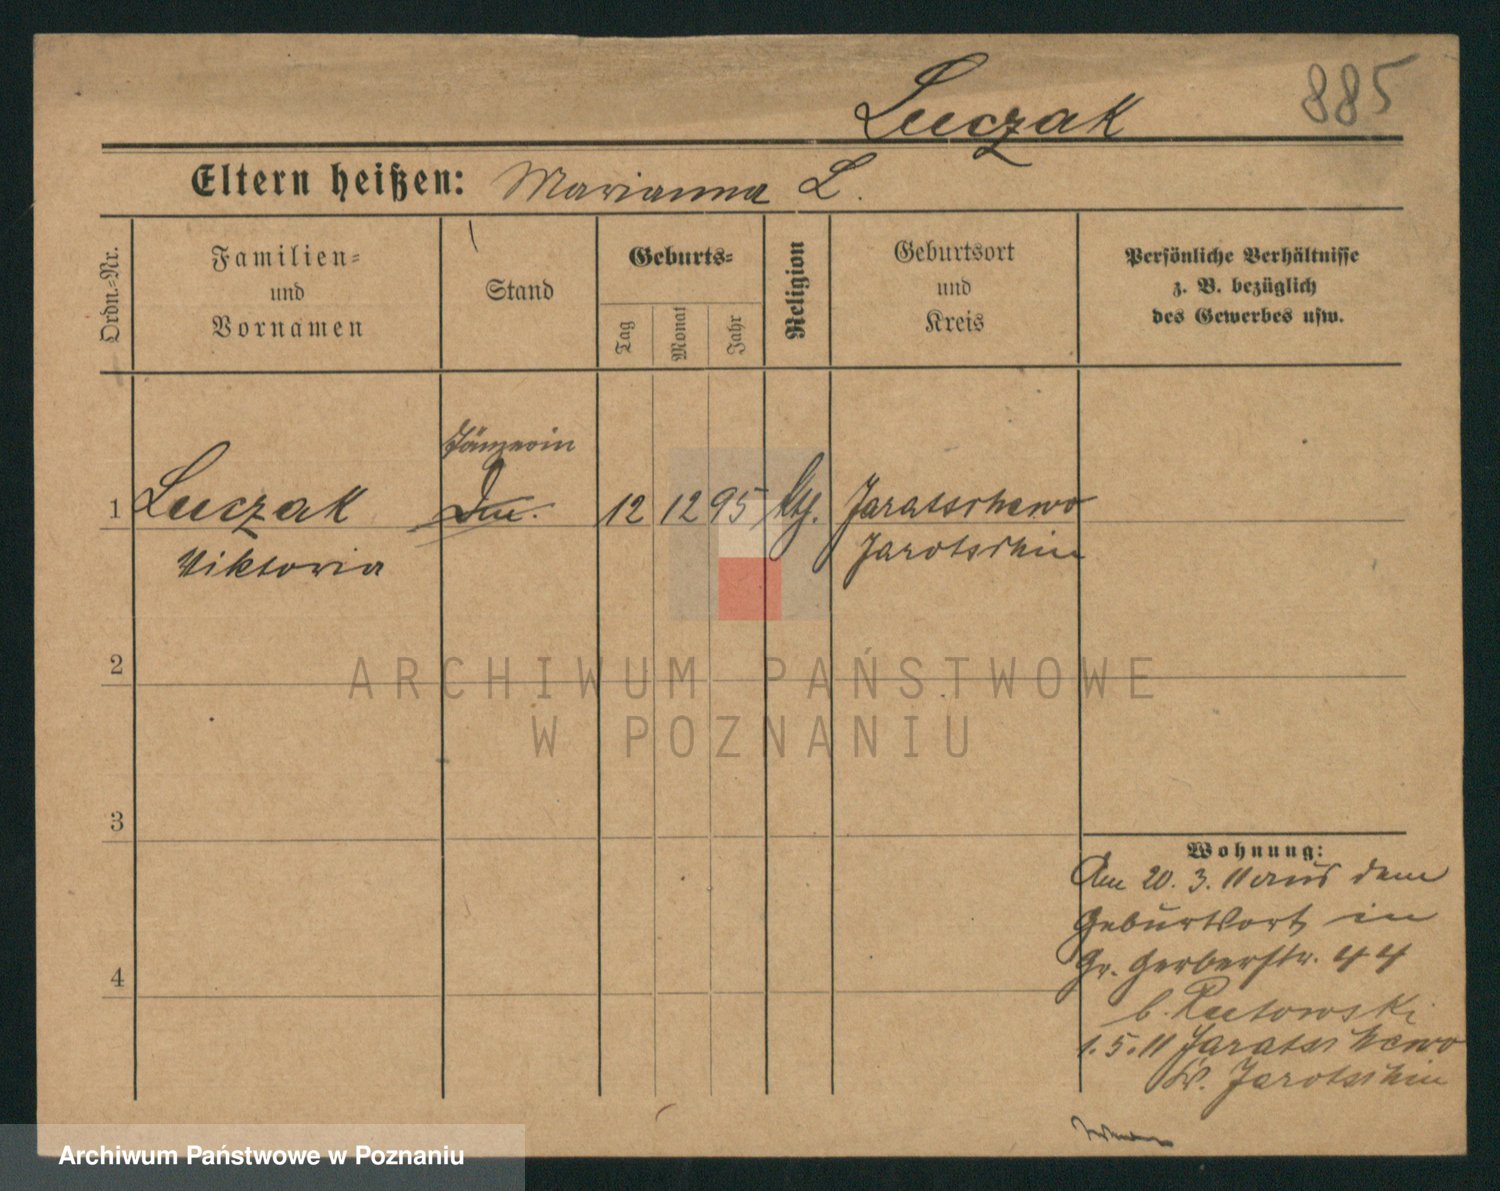 885
Luczak
Eltern heißen: Marianna L.
Ordn.-Nr.
Familien-
und
Vornamen
Stand
Geburts-
Tag
Monat
Jahr
Religion
Geburtsort
und
Kreis
Persönliche Verhältnisse
z. B. bezüglich
des Gewerbes usw.
1 Luczak 12 12 95 kth. Jaratschewo
Viktoria Jarotschin
2
3
4
Wohnung:
Am 20. 3. 11 aus dem
Geburtsort in
Gr. Gerberstr. 44
b. Rutowski
1. 5. 11 Jaratschewo
Kr. Jarotschin
ARCHIWUM PAŃSTWOWE
W POZNANIU
Archiwum Państwowe w Poznaniu